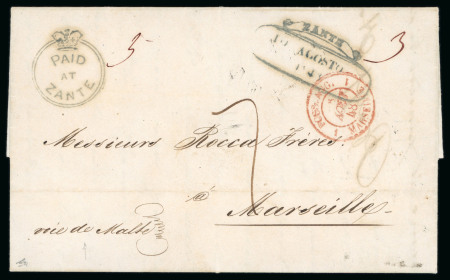 PAID
AT
ZANTE
5
ZANTE
AGOSTO
3
MARSEILLE
7
Messieurs Rocca Frères
à
Marseille
voie de Malte